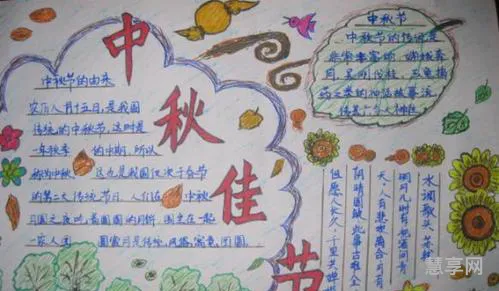 中秋佳节
中秋节的由来
农历八月十五日,是我国
传统的中秋节,这时是
一年秋季 的中期,所以
称为中秋 这也是我国仅次于春节
的第二大传统节日,人们在 中秋
一家人
中秋节
中秋节的传说是
非常丰富的,嫦娥奔
月,吴刚伐桂,玉兔捣
药之类的神话故事流
水调歌头 苏轼
明月几时有,把酒问青
天 人有悲欢离合,月有
阴晴圆缺,此事古难全
但愿人长久,千里共婵娟
慧享网